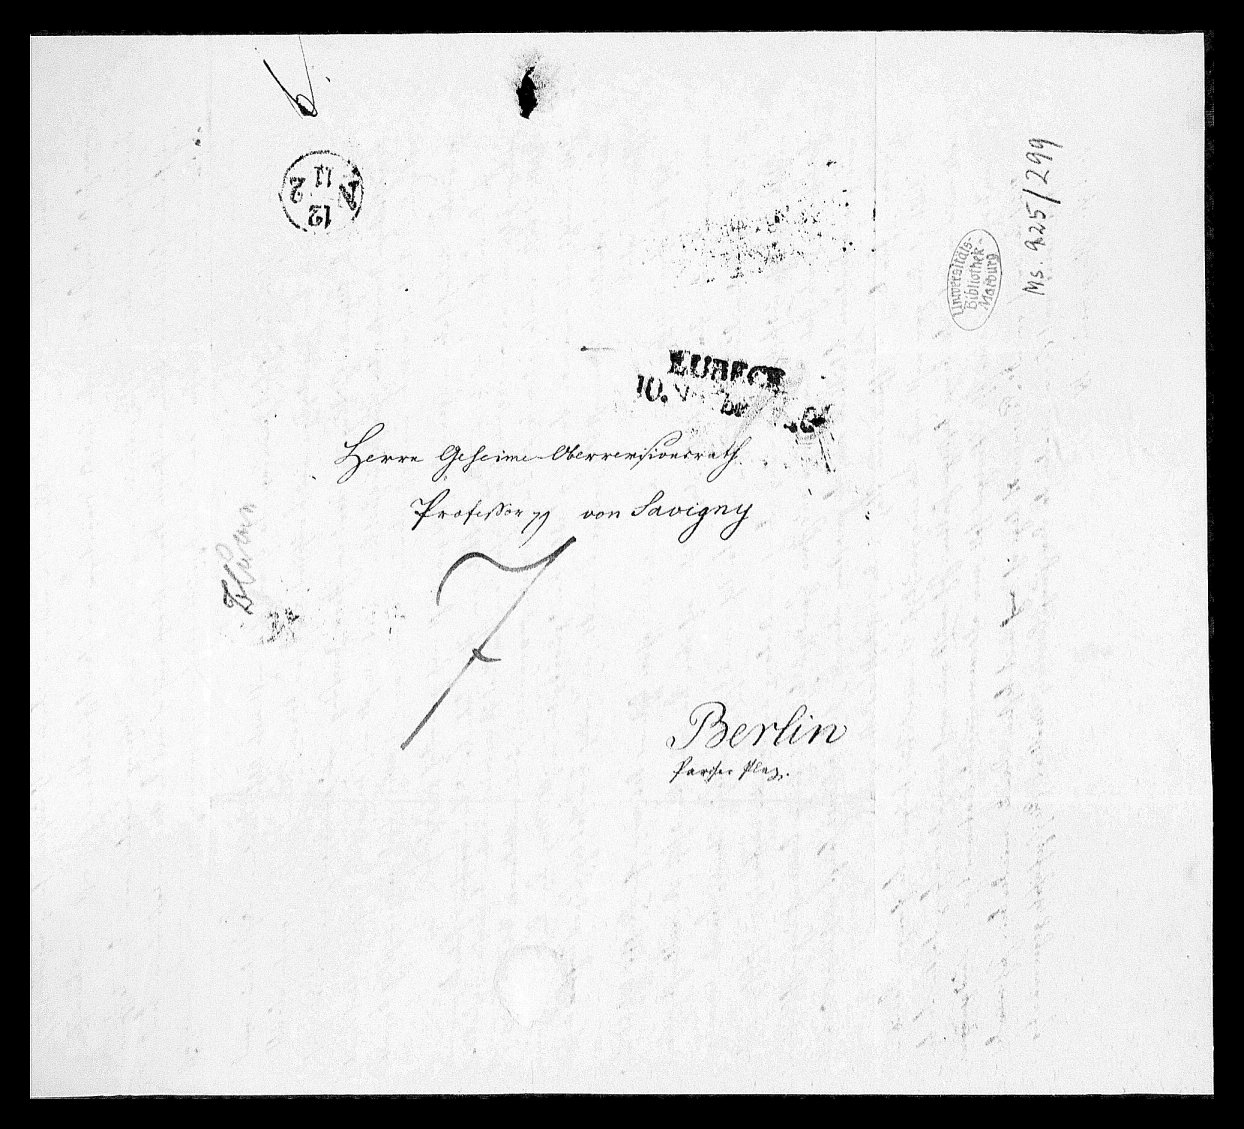 N 11 2
12
Ms. 925/299
Universitäts-
Bibliothek
Marburg
LUBECK
10.
Herrn Geheime-Oberrevisionsrath
Professor von Savigny
7
Berlin
Pariser Platz.